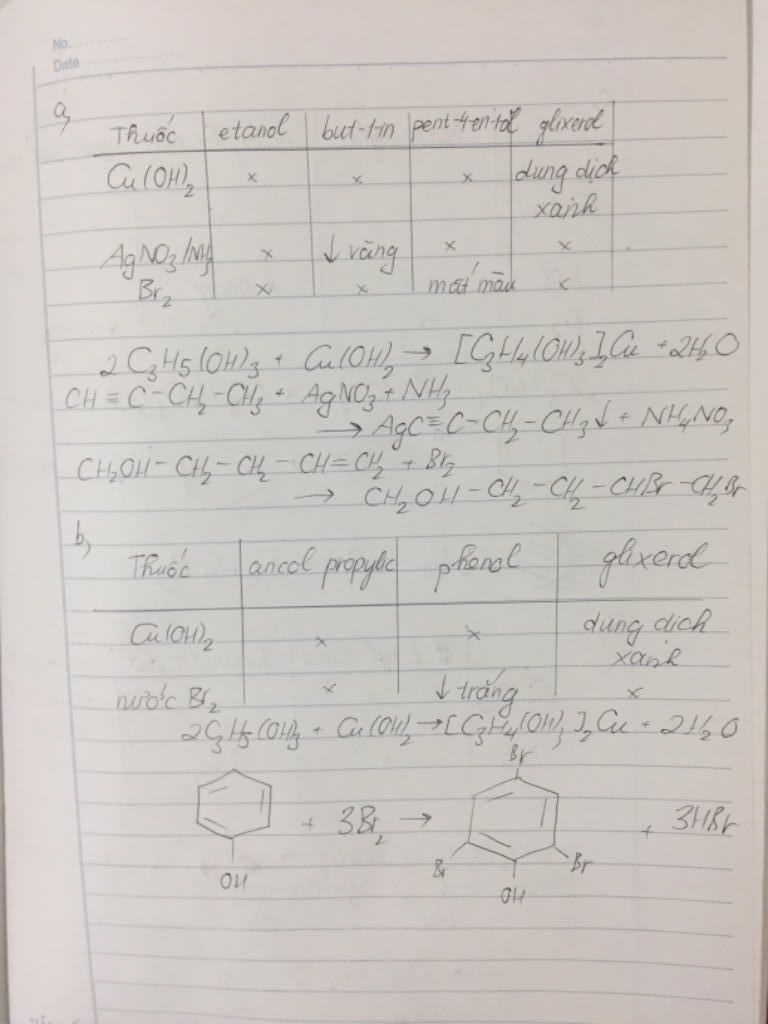 No.
Date
a,
Thuốc | etanol | but-1-in | pent-4-en-1-ol | glixerol
Cu(OH)₂ | x | x | x | dung dịch xanh
AgNO₃/NH₃ | x | ↓ vàng | x | x
Br₂ | x | x | mất màu | x
2C₃H₅(OH)₃ + Cu(OH)₂ → [C₃H₄(OH)₃]₂Cu + 2H₂O
CH≡C-CH₂-CH₃ + AgNO₃ + NH₃
→ AgC≡C-CH₂-CH₃↓ + NH₄NO₃
CH₂OH-CH₂-CH₂-CH=CH₂ + Br₂
→ CH₂OH-CH₂-CH₂-CHBr-CH₂Br
b,
Thuốc | ancol propylic | phenol | glixerol
Cu(OH)₂ | x | x | dung dịch xanh
nước Br₂ | x | ↓ trắng | x
2C₃H₅(OH)₃ + Cu(OH)₂ → [C₃H₄(OH)₃]₂Cu + 2H₂O
Br
+ 3Br₂ → + 3HBr
Br Br
OH OH